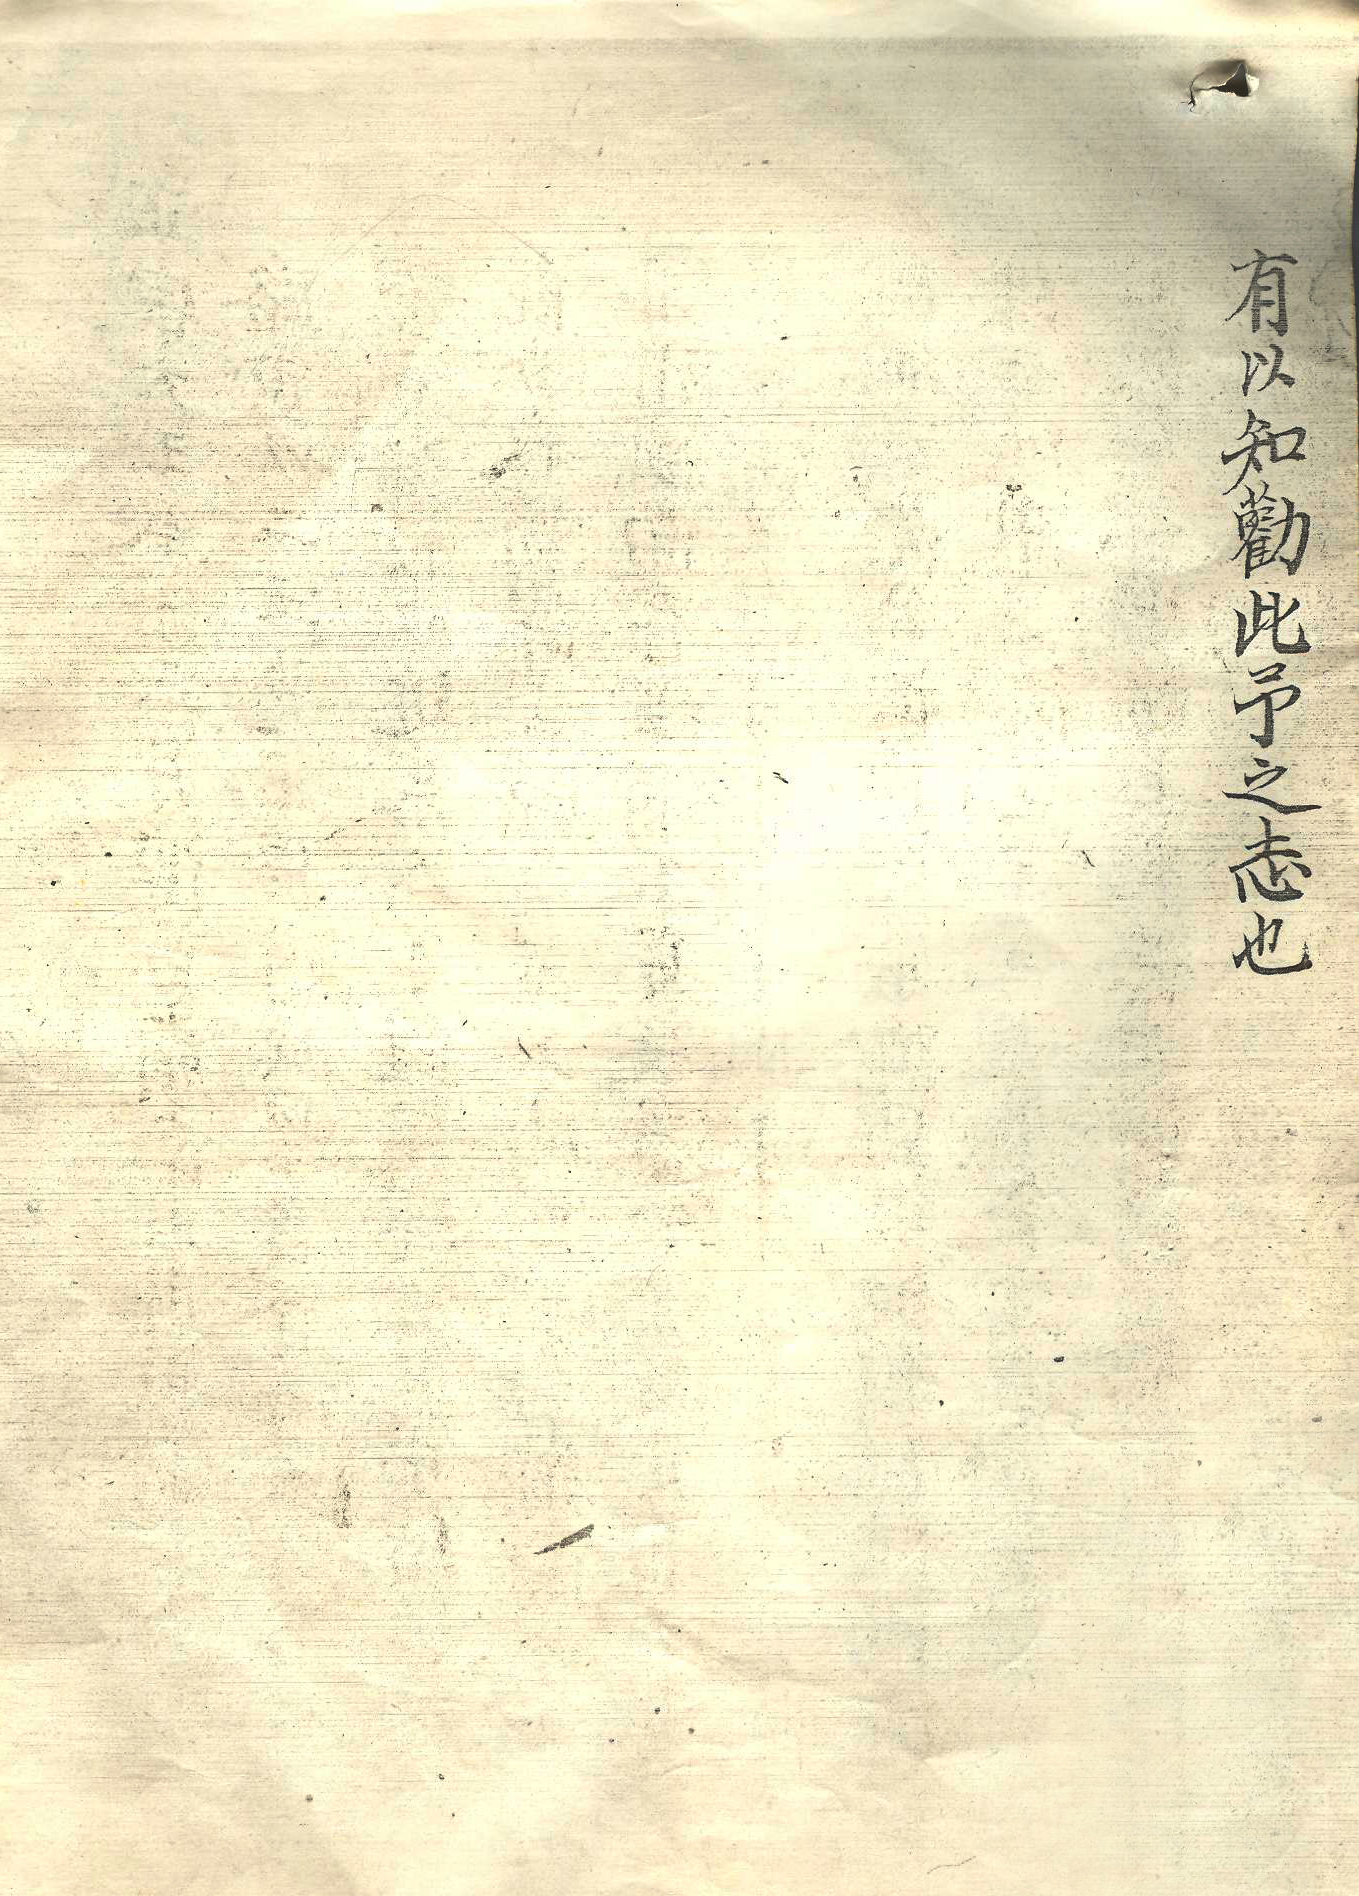 有以知勸此予之志也